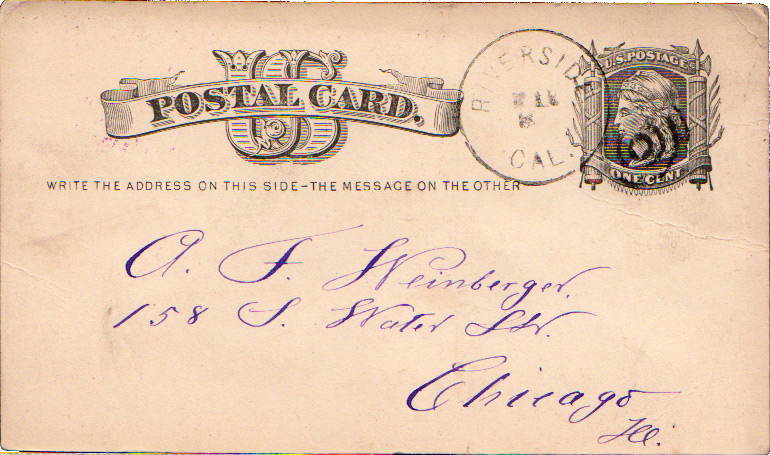 US
POSTAL CARD.
WRITE THE ADDRESS ON THIS SIDE-THE MESSAGE ON THE OTHER
RIVERSIDE
CAL.
U.S. POSTAGE.
ONE CENT
A. F. Weinberger.
158 S. Water St.
Chicago
Ill.